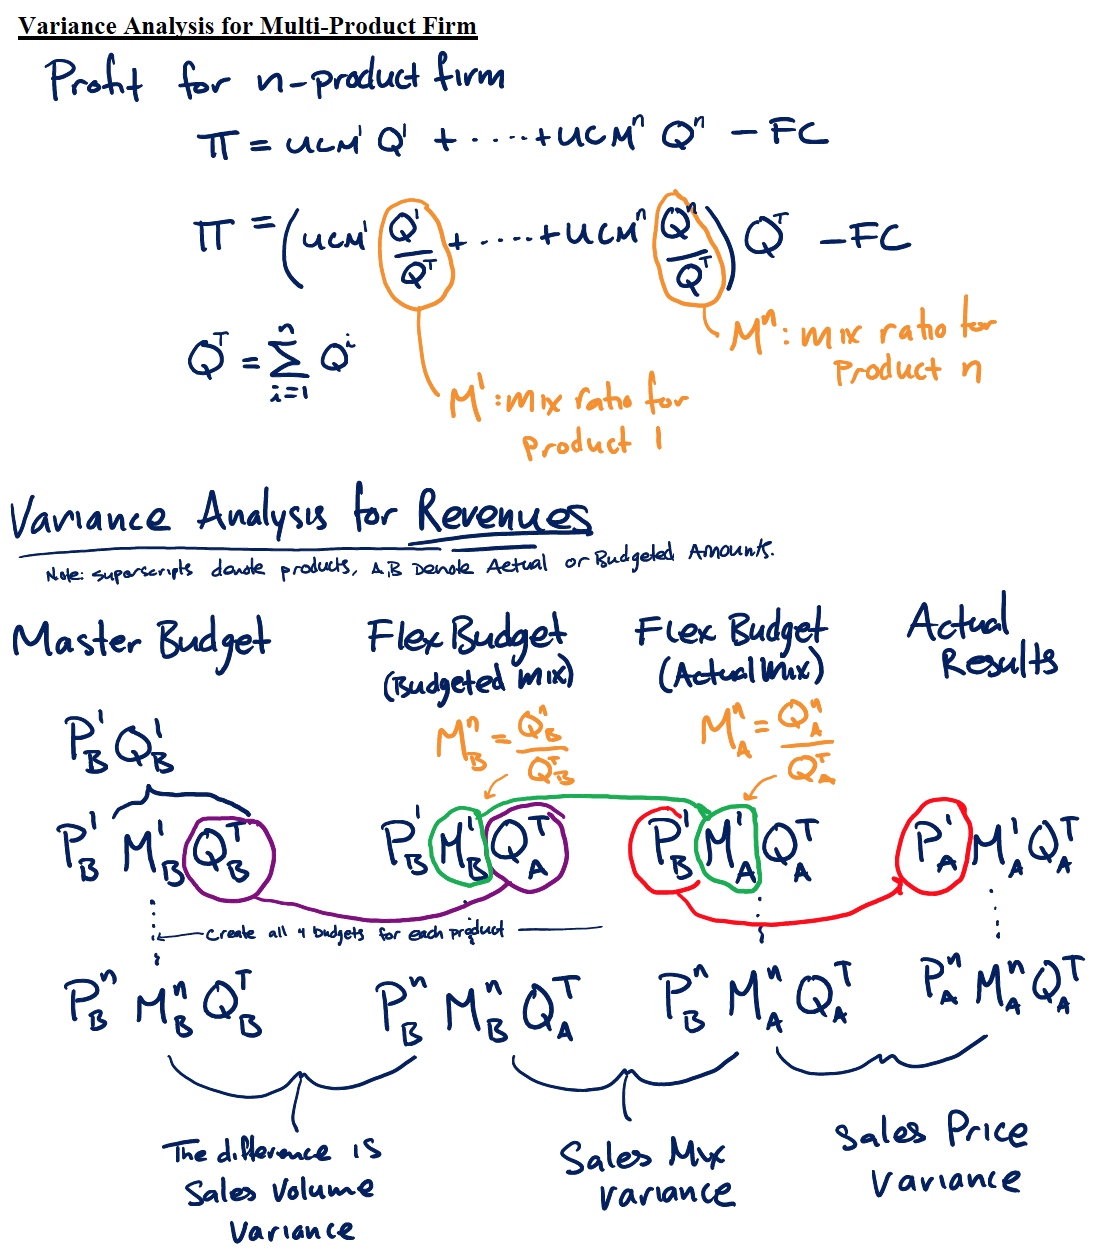 Variance Analysis for Multi-Product Firm
Profit for n-product firm
π = UCM¹ Q¹ + ·····+ UCMⁿ Qⁿ − FC
π = (UCM¹ Q¹/Qᵀ + ·····+ UCMⁿ Qⁿ/Qᵀ) Qᵀ − FC
Mⁿ: mix ratio for
Product n
Qᵀ = Σ_{i=1}^{n} Qⁱ
M¹: mix ratio for
Product 1
Variance Analysis for Revenues
Note: superscripts denote products, A,B Denote Actual or Budgeted Amounts.
Master Budget Flex Budget Flex Budget Actual
(Budgeted Mix) (Actual Mix) Results
P_B^1 Q_B^1 M_B^n = Q_B^n/Q_B^T M_A^n = Q_A^n/Q_A^T
P_B^1 M_B^1 Q_B^T P_B^1 M_B^1 Q_A^T P_B^1 M_A^1 Q_A^T P_A^1 M_A^1 Q_A^T
Create all 4 budgets for each product
P_B^n M_B^n Q_B^T P_B^n M_B^n Q_A^T P_B^n M_A^n Q_A^T P_A^n M_A^n Q_A^T
The difference is
Sales Volume
Variance
Sales Mix
Variance
Sales Price
Variance